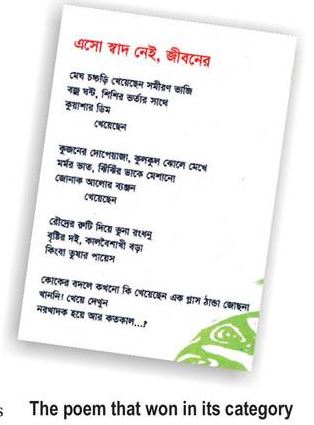 এসো স্বাদ নেই, জীবনের
মেঘ চচ্চড়ি খেয়েছেন সমীরণ ভাজি
বজ্র ঘন্ট, শিশির ভর্তার সাথে
কুয়াশার ডিম
খেয়েছেন
কুজনের দোপেয়াজা, কুলকুল ঝোলে মেখে
মর্মর ভাত, ঝিঁঝির ডাকে মেশানো
জোনাক আলোর ব্যঞ্জন
খেয়েছেন
রৌদ্রের রুটি দিয়ে ভুনা রংধনু
বৃষ্টির দই, কালবৈশাখী বড়া
কিংবা তুষার পায়েস
কোকের বদলে কখনো কি খেয়েছেন এক গ্লাস ঠান্ডা জোছনা
খাননি! খেয়ে দেখুন
নরখাদক হয়ে আর কতকাল...?
s The poem that won in its category